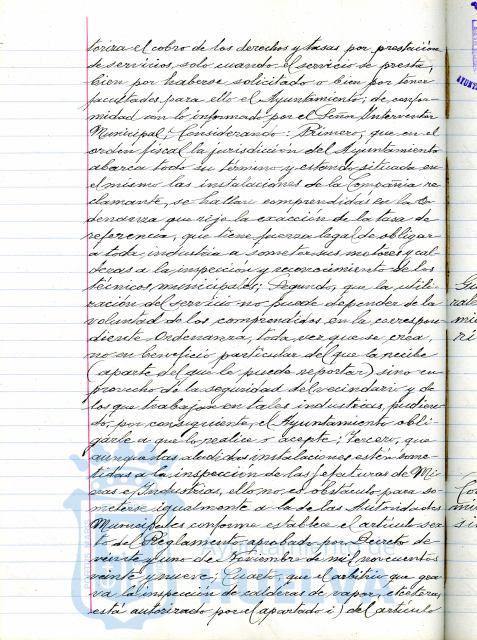 toriza el cobro de los derechos y tasas por prestación
de servicios, solo cuando el servicio se presta,
bien por haberse solicitado o bien por tener
facultades para ello el Ayuntamiento; de confor-
midad con lo informado por el Señor Interventor
Municipal; Considerando: Primero, que en el
orden fiscal la jurisdicción del Ayuntamiento
abarca todo su término y estando situada en
el mismo las instalaciones de la Compañia re-
clamante, se hallan comprendidas en la Or-
denanza que rije la exacción de la tasa de
referencia, que tiene fuerza legal de obligar
a toda industria a someter sus motores y cal-
deras a la inspección y reconocimiento de los
técnicos municipales; Segundo, que la utili-
zación del servicio no puede depender de la
voluntad de los comprendidos en la correspon-
diente Ordenanza, toda vez que se crea,
no en beneficio particular del que la recibe
(aparte del que la puede reportar) sino en
provecho de la seguridad del vecindario y de
los que trabajan en tales industrias, pudien-
do, por consiguiente, el Ayuntamiento obli-
garle a que lo realice o acepte; Tercero, que
aunque las aludidas instalaciones estén some-
tidas a la inspección de las Jefaturas de Mi-
nas e Industrias, ello no es obstáculo para so-
meterse igualmente a la de las Autoridades
Municipales conforme establece el artículo sex-
to del Reglamento aprobado por Decreto de
veinte y uno de Noviembre de mil novecientos
veinte y nueve; Cuarto, que el arbitrio que gra-
va la inspección de calderas de vapor, etcétera,
está autorizado por el (apartado i) del artículo
Ayuntamiento de